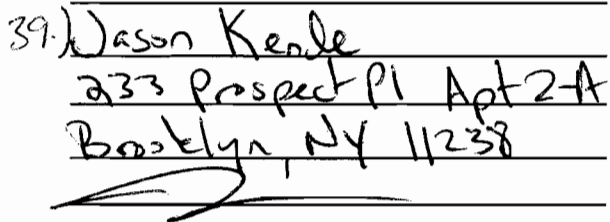 39.) Jason Kende
233 Prospect Pl Apt 2-A
Brooklyn, NY 11238